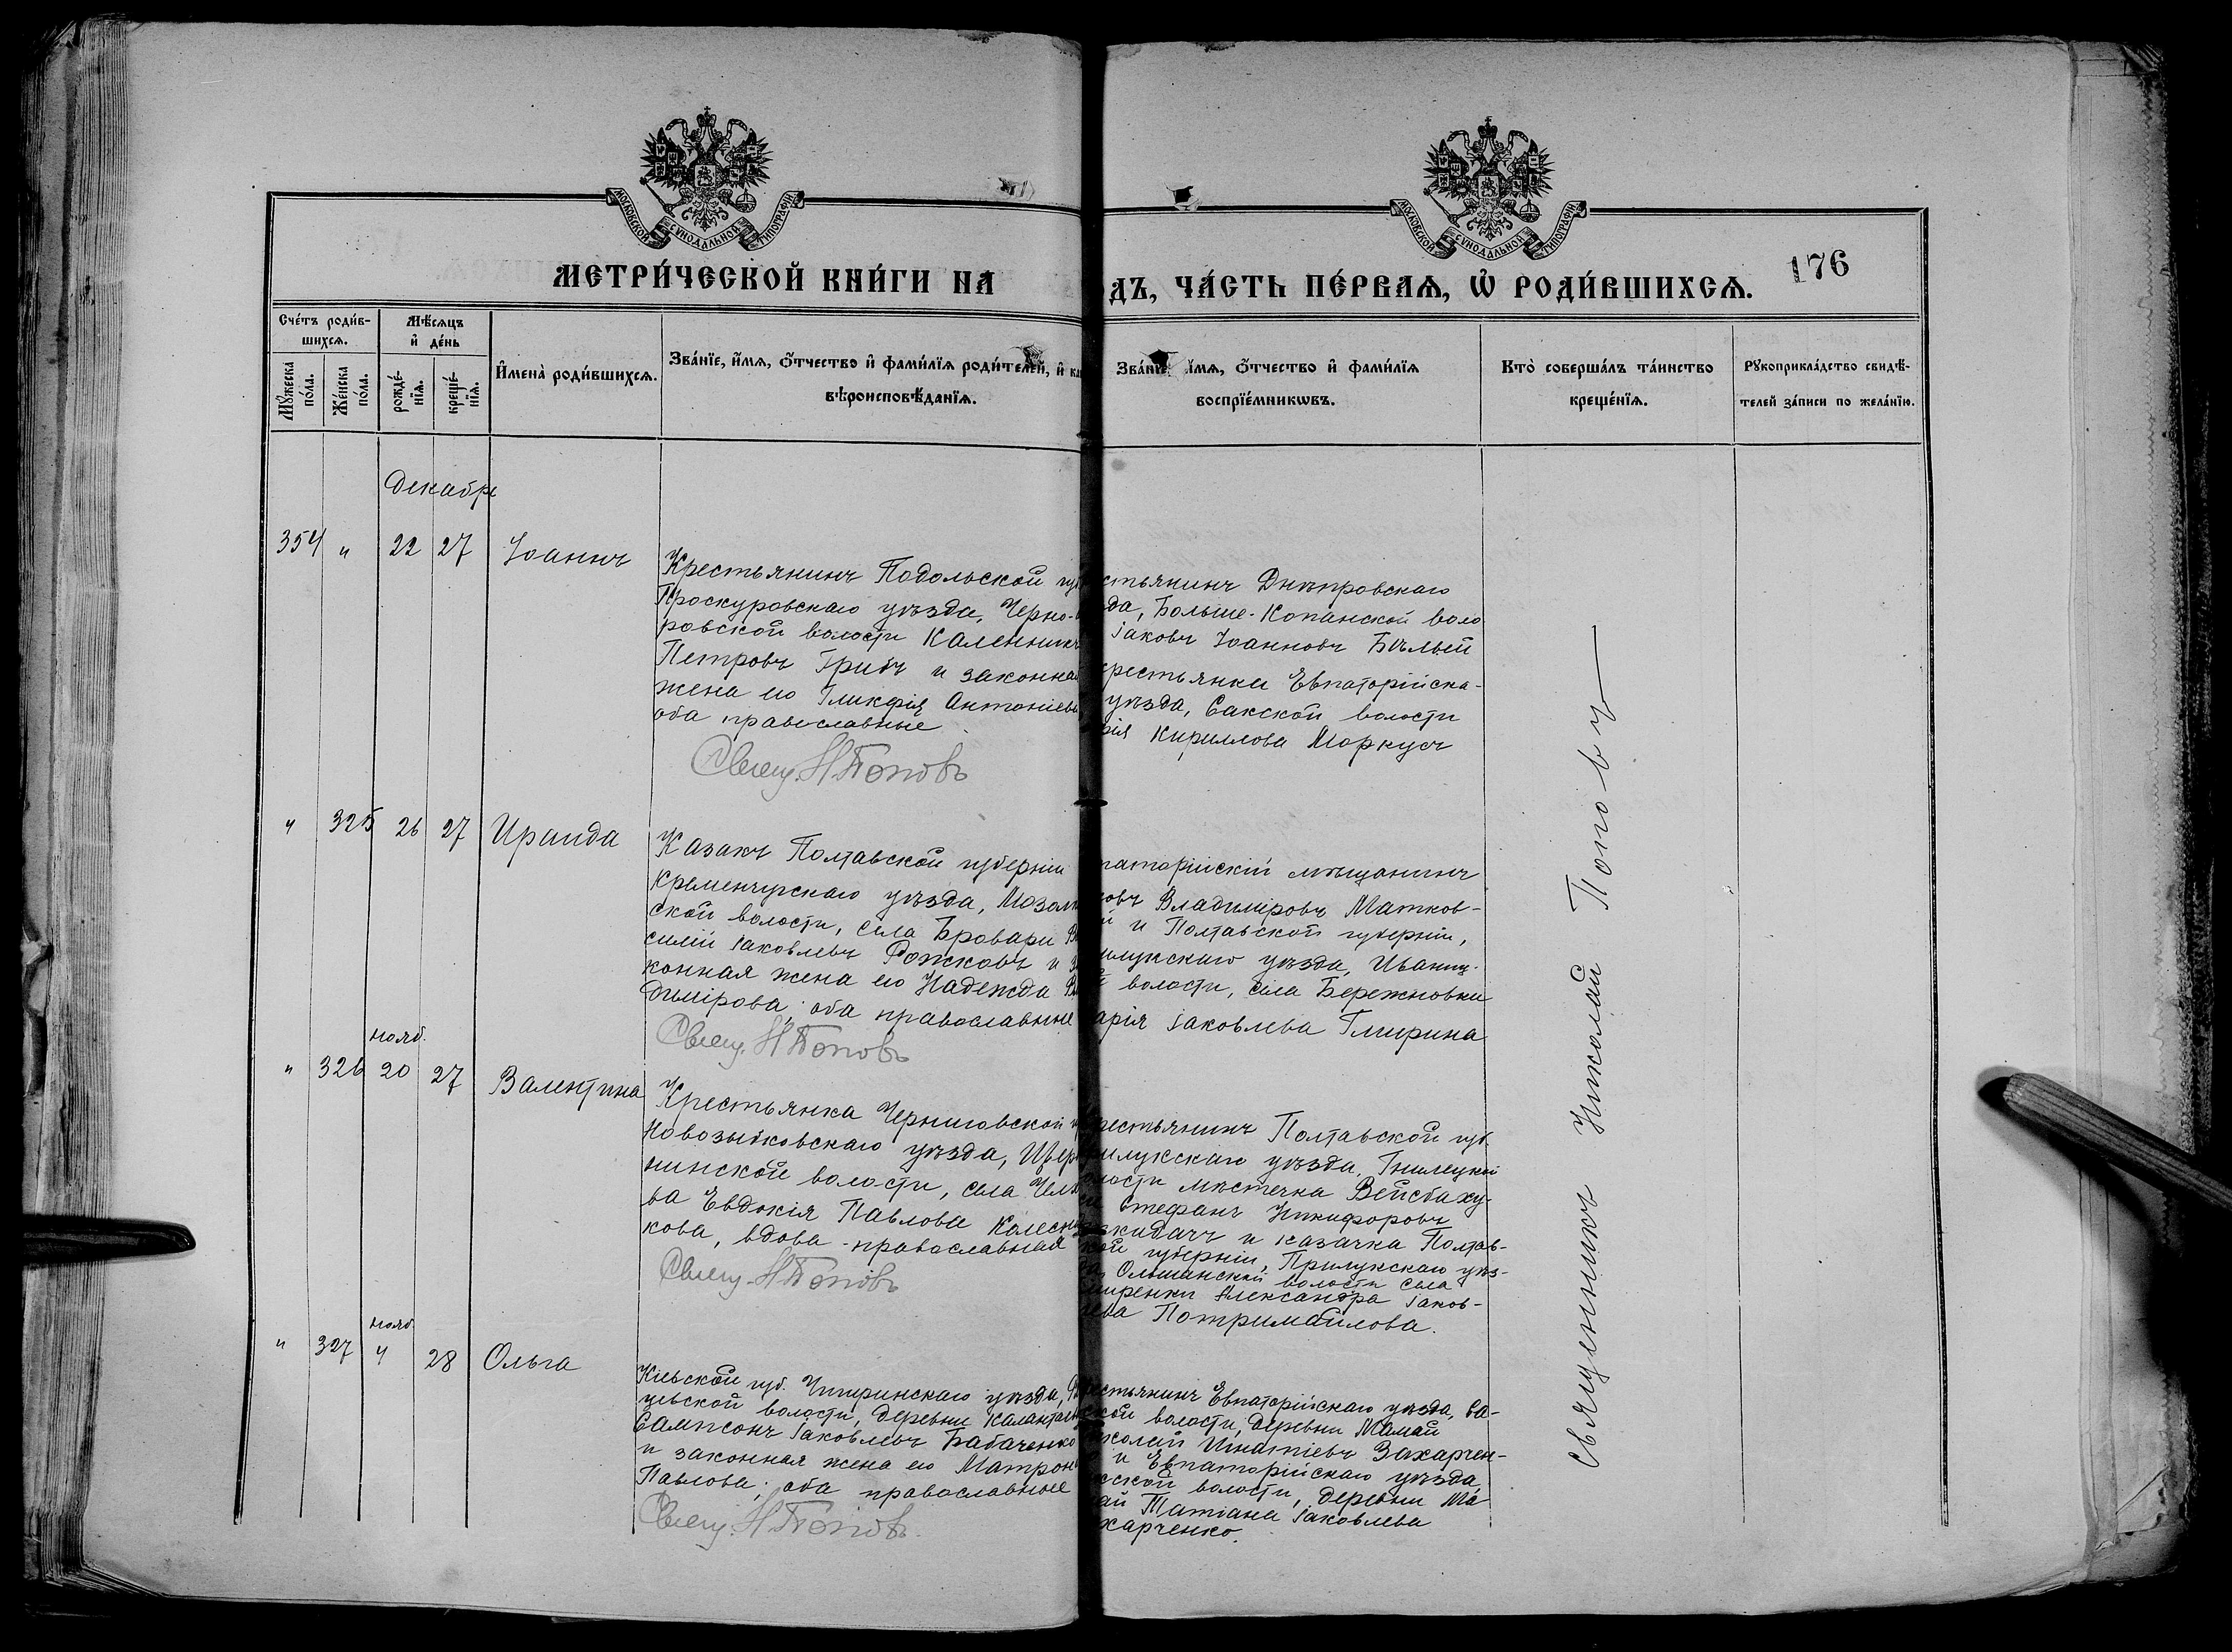 МОСКОВСКОЙ СУНОДАЛЬНОЙ ТИПОГРАФІИ
МОСКОВСКОЙ СУНОДАЛЬНОЙ ТИПОГРАФІИ
МЕТРИ́ЧЕСКОЙ КНИ́ГИ НА
ДЪ, ЧА́СТЬ ПЕ́РВАѦ, Ѡ҆ РОДИ́ВШИХСѦ.
176
Сче́тъ роди́в-
шихсѧ.
Мѣ́сѧцъ
и҆ де́нь
Мꙋ́жеска
по́ла.
Же́нска
по́ла.
рожде́-
нїѧ.
креще́-
нїѧ.
И҆мена̀ роди́вшихсѧ.
Зва́нїе, и҆́мѧ, ѻ҆́тчество и҆ фами́лїѧ роди́телей, и҆
вѣроисповѣ́данїѧ.
Зва́нїе и҆́мѧ, ѻ҆́тчество и҆ фами́лїѧ
воспрїе́мникѡвъ.
Кто̀ соверша́лъ та́инство
креще́нїѧ.
Рꙋкоприкла́дство свидѣ́-
телей за́писи по жела́нїю.
Декабрь
354 " 22 27 Іоаннъ
Крестьянинъ Подольской губ
Проскуровскаго уѣзда, Черно-
ровской волости Каленникъ
Петровъ Грибъ и законная
жена его Гликфія Антоніев
оба православные
Свящ. Н Поповъ
стьянинъ Днѣпровскаго
да, Больше-Копанской воло
Іаковъ Іоанновъ Бѣлый
крестьянка Евпаторійска-
уѣзда, Сакской волости
рія Кириллова Моркусъ
" 325 26 27 Ираида
Казакъ Полтавской губерніи
Кременчугскаго уѣзда,
ской волости, села Бровари
силій Іаковлевъ Рожковъ и за
конная жена его Надежда Вла
димірова; оба православные
Свящ. Н Поповъ
паторійскій мѣщанинъ
ковъ Владиміровъ Матков-
й и Полтавской губерніи,
илукскаго уѣзда, Иваниц-
й волости, села Бережновки
арія Іаковлева Глирина
" 326 нояб. 20 27 Валентина
Крестьянка Черниговской
Новозыбковскаго уѣзда,
нинской волости, села
ва Евдокія Павлова Колесни
кова, вдова - православная
Свящ. Н Поповъ
рестьянинъ Полтавской губ.
илукскаго уѣзда, Гнилецкой
лости мѣстечка Вейсбаху-
Стефанъ Никифоровъ
кидачъ и казачка Полтав-
кой губерніи, Прилукскаго уѣз-
Ольшанской волости села
Александра Іаков-
лева Потримайлова.
" 327 нояб. 4 28 Ольга
Кіевской губ. Чигиринскаго уѣзда,
цевской волости, деревни
Сампсонъ Іаковлевъ Бабаченко
и законная жена его Матрон
Павлова; оба православные
Свящ. Н Поповъ.
рестьянинъ Евпаторійскаго уѣзда, Са-
ской волости, деревни Мамай
иколай Игнатіевъ Захарчен-
и Евпаторійскаго уѣзда,
кской волости, деревни Ма-
май Татіана Іаковлева
харченко.
Священникъ Николай Поповъ